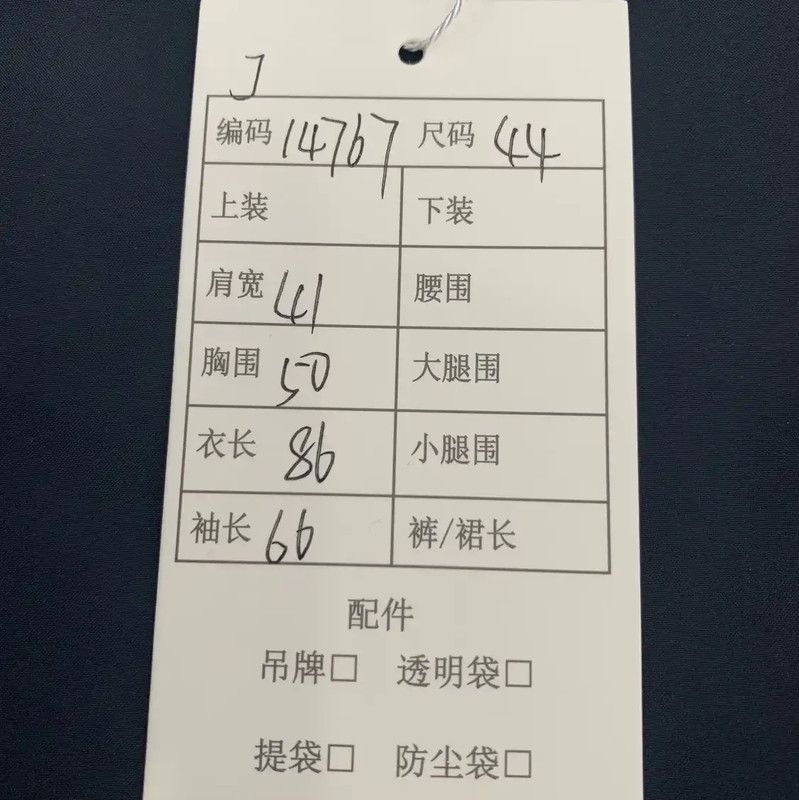 J
编码 14767 尺码 44
上装 下装
肩宽 41 腰围
胸围 50 大腿围
衣长 86 小腿围
袖长 66 裤/裙长
配件
吊牌□ 透明袋□
提袋□ 防尘袋□